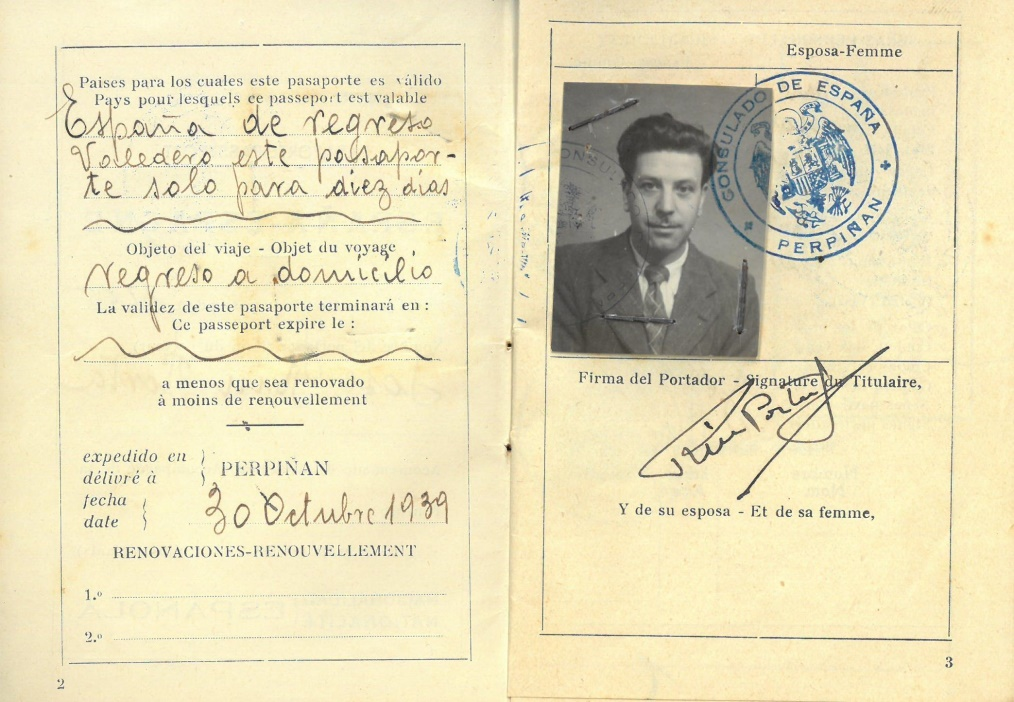 Paises para los cuales este pasaporte es válido
Pays pour lesquels ce passeport est valable
España de regreso
Valedero este pasapor-
te solo para diez días
Objeto del viaje - Objet du voyage
regreso a domicilio
La validez de este pasaporte terminará en :
Ce passeport expire le :
a menos que sea renovado
à moins de renouvellement
expedido en
délivré à
PERPIÑAN
fecha
date
30 Octubre 1939
RENOVACIONES-RENOUVELLEMENT
1.º
2.º
2
Esposa-Femme
CONSULADO DE ESPAÑA
PERPIÑAN
Firma del Portador - Signature du Titulaire,
Y de su esposa - Et de sa femme,
3